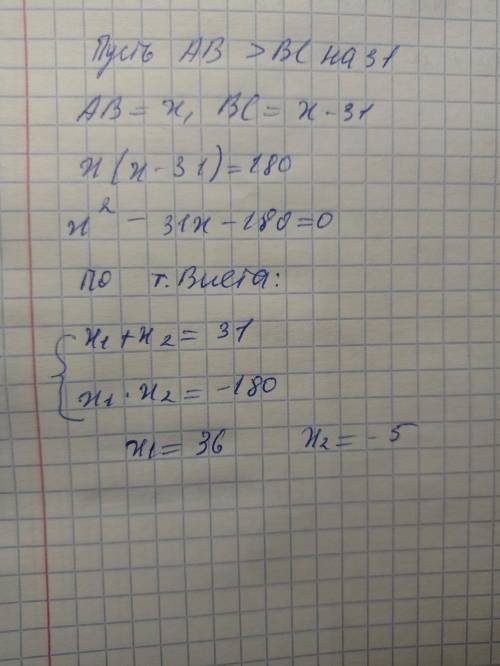 Пусть AB > BC на 31
AB = x, BC = x - 31
x(x - 31) = 180
x² - 31x - 180 = 0
по т. Виета:
x₁ + x₂ = 31
x₁ · x₂ = -180
x₁ = 36 x₂ = -5